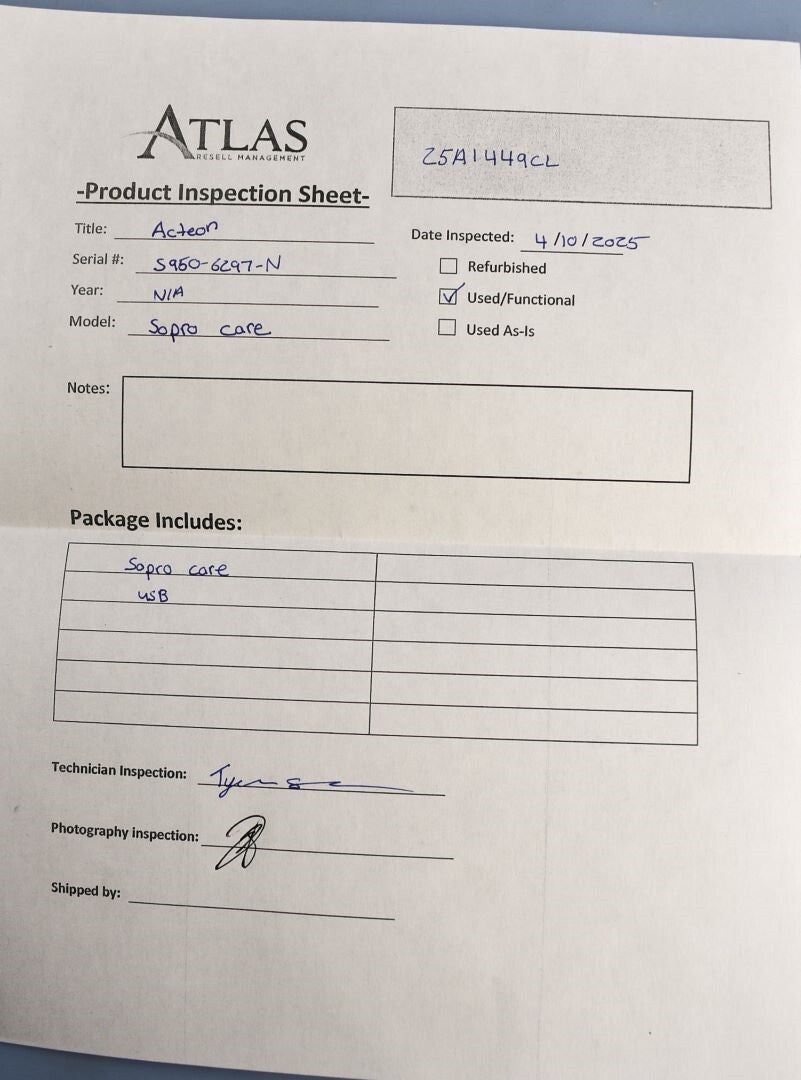 ATLAS
RESELL MANAGEMENT
25A1449CL
-Product Inspection Sheet-
Title: Acteon
Date Inspected: 4/10/2025
Serial #: S950-6297-N
Refurbished
Year: N/A
Used/Functional
Model: Sopro care
Used As-Is
Notes:
Package Includes:
Sopro care
USB
Technician Inspection:
Photography inspection:
Shipped by: